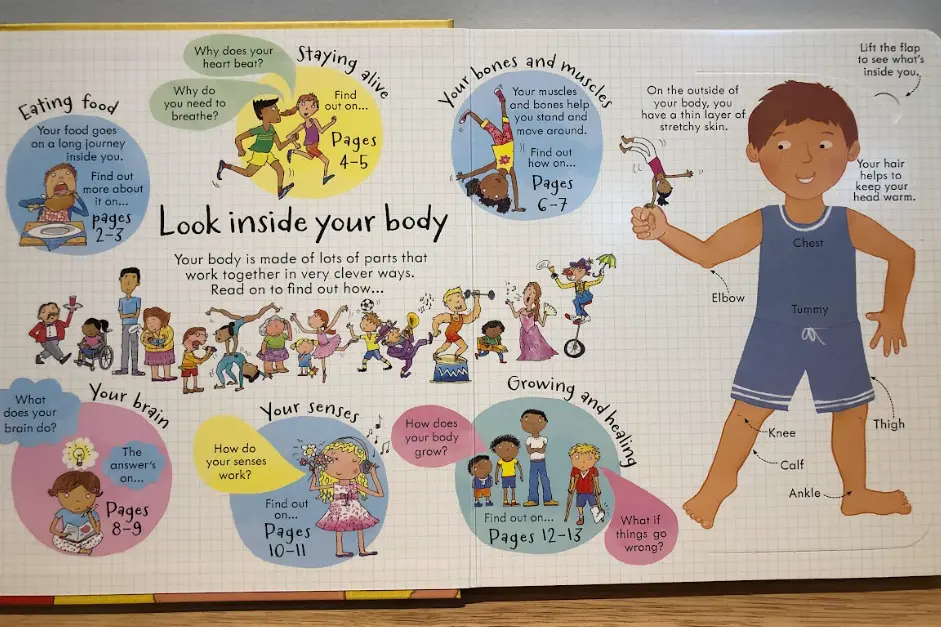 Eating food
Your food goes
on a long journey
inside you.
Find out
more about
it on...
pages
2–3
Why does your
heart beat?
Why do
you need to
breathe?
Staying alive
Find
out on...
Pages
4–5
Your bones and muscles
Your muscles
and bones help
you stand and
move around.
Find out
how on...
Pages
6–7
Look inside your body
Your body is made of lots of parts that
work together in very clever ways.
Read on to find out how...
What
does your
brain do?
Your brain
The
answer's
on...
Pages
8–9
Your senses
How do
your senses
work?
Find out
on...
Pages
10–11
Growing and healing
How does
your body
grow?
Find out on...
Pages 12–13
What if
things go
wrong?
Lift the flap
to see what's
inside you.
On the outside of
your body, you
have a thin layer of
stretchy skin.
Your hair
helps to
keep your
head warm.
Chest
Tummy
Elbow
Thigh
Knee
Calf
Ankle